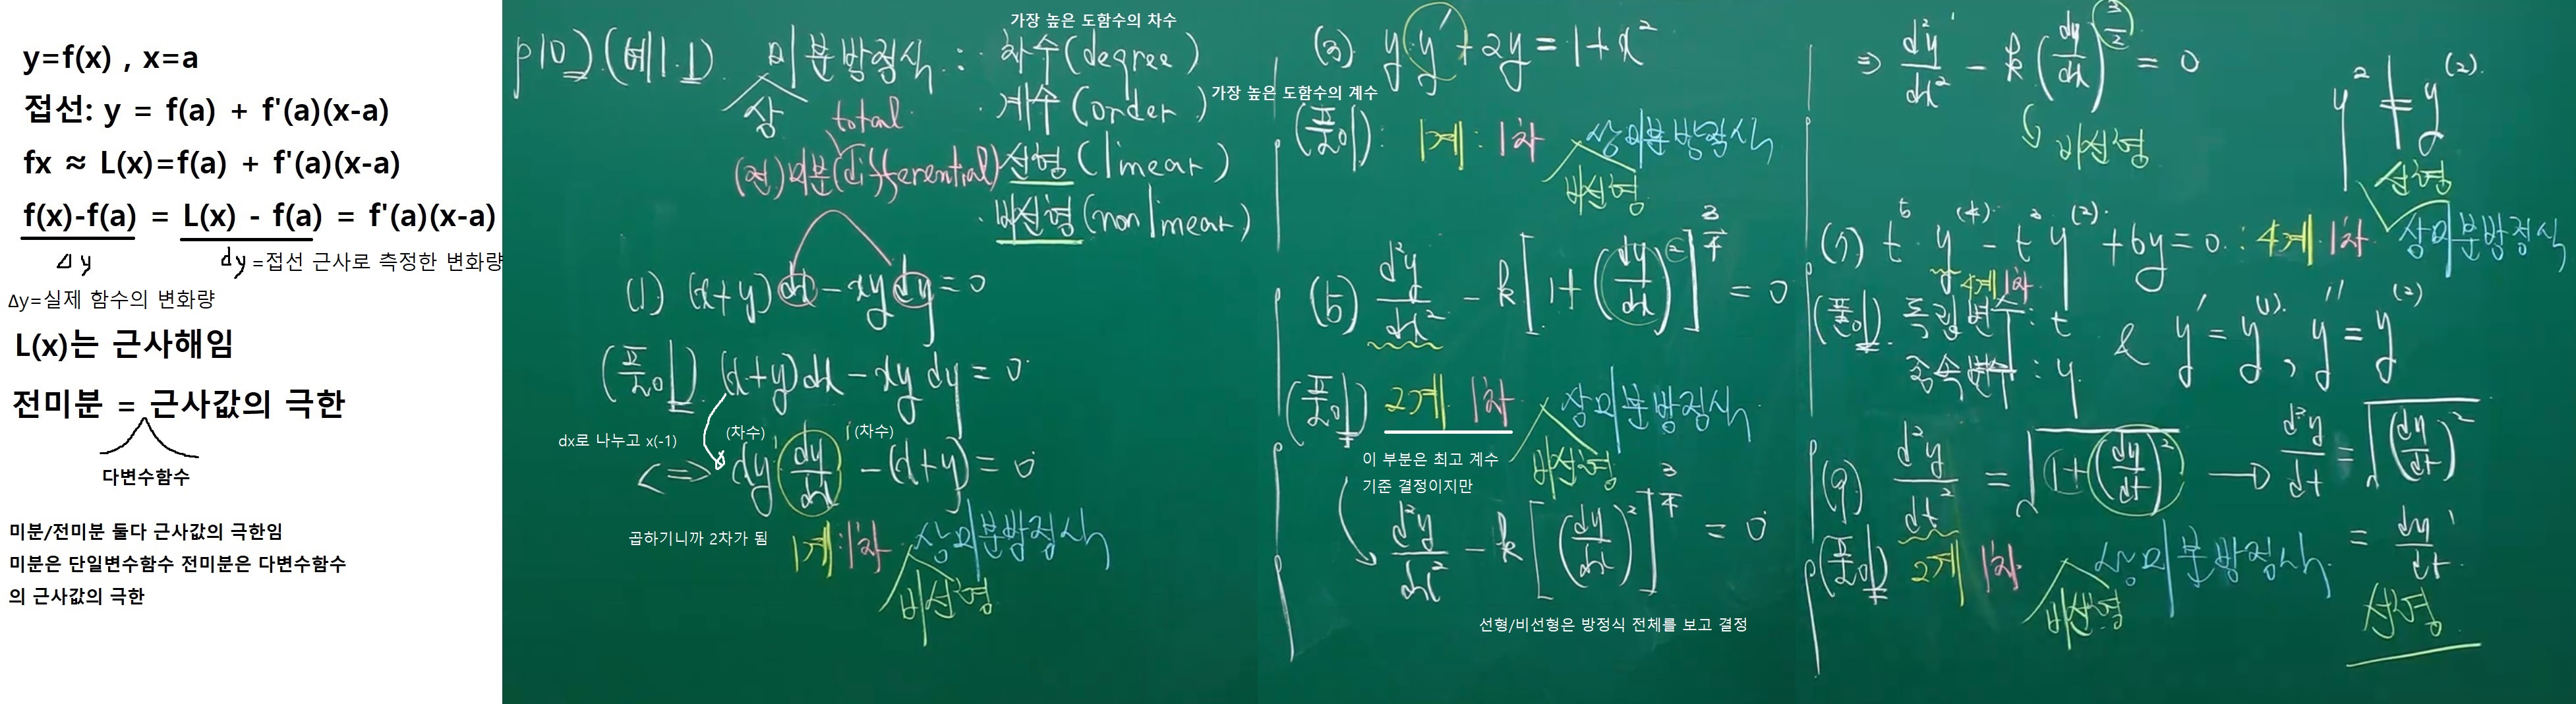 y=f(x) , x=a
접선: y = f(a) + f'(a)(x-a)
fx ≈ L(x)=f(a) + f'(a)(x-a)
f(x)-f(a) = L(x) - f(a) = f'(a)(x-a)
⊿y
dy =접선 근사로 측정한 변화량
Δy=실제 함수의 변화량
L(x)는 근사해임
전미분 = 근사값의 극한
다변수함수
미분/전미분 둘다 근사값의 극한임
미분은 단일변수함수 전미분은 다변수함수
의 근사값의 극한
가장 높은 도함수의 차수
p10) (예1.1) 미분방정식 : · 차수(degree)
상
· 계수(order) 가장 높은 도함수의 계수
total
(전)미분(differential) · 선형(linear)
· 비선형(nonlinear)
(1) (x+y)dx - xy dy = 0
(풀이) (x+y)dx - xy dy = 0
dx로 나누고 x(-1)
(차수) (차수)
<=> xy dy/dx - (x+y) = 0
곱하기니까 2차가 됨
1계 1차 상미분방정식
비선형
(3) yy' + 2y = 1+x²
(풀이): 1계 1차 상미분방정식
비선형
(5) d²y/dx² - k[1+(dy/dx)²]^(3/4) = 0
(풀이) 2계 1차 상미분방정식
비선형
이 부분은 최고 계수
기준 결정이지만
d²y/dx² - k[(dy/dx)²]^(3/4) = 0
선형/비선형은 방정식 전체를 보고 결정
=> d²y/dx² - k(dy/dx)^(3/2) = 0
비선형
y² ≠ y^(2)
선형
(7) t⁵ y^(4) - t³ y^(2) + 6y = 0 : 4계 1차 상미분방정식
4계 1차
(풀이) 독립변수 : t
종속변수 : y
& y' = y^(1), y'' = y^(2)
(9) d²y/dt² = √(1+(dy/dt)²) → d²y/dt = √((dy/dt)²)
= dy/dt
(풀이) 2계 1차 상미분방정식
비선형
선형